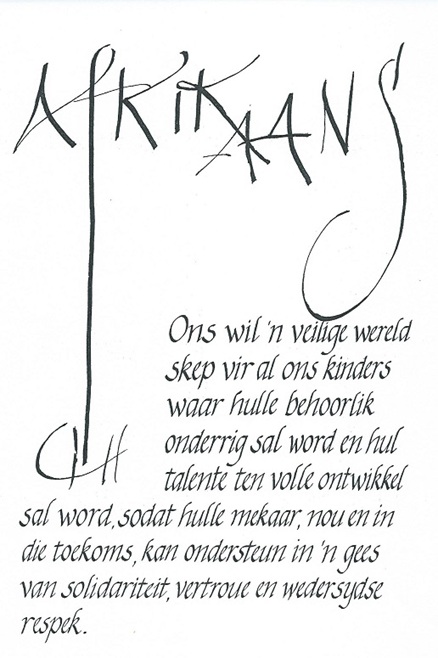 AfKiKAANS
Ons wil 'n veilige wereld
skep vir al ons kinders
waar hulle behoorlik
onderrig sal word en hul
talente ten volle ontwikkel
sal word, sodat hulle mekaar, nou en in
die toekoms, kan ondersteun in 'n gees
van solidariteit, vertroue en wedersydse
respek.